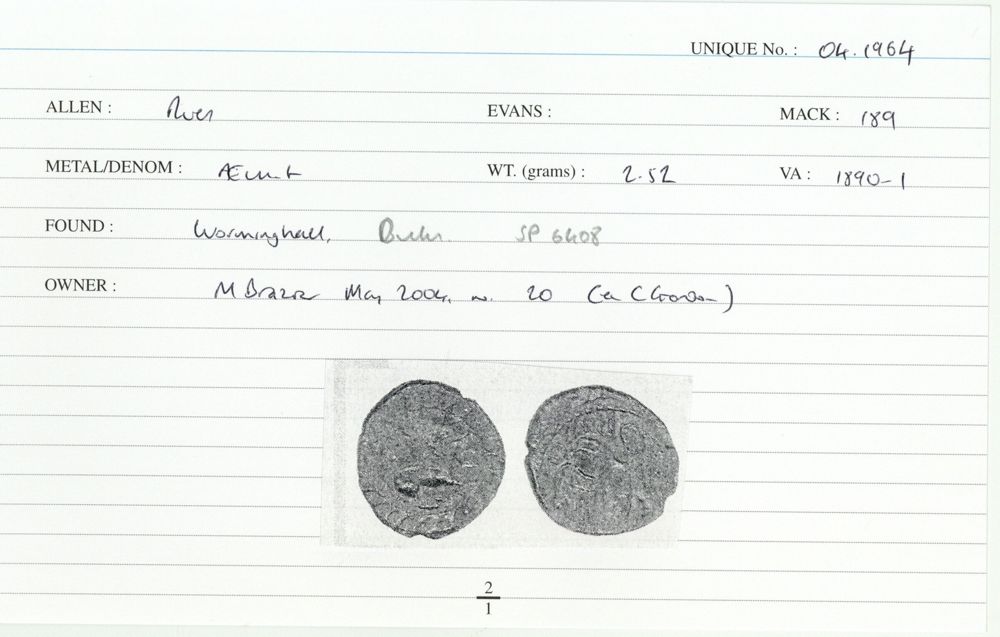 UNIQUE No. : 04.1964
ALLEN : EVANS : MACK : 189
METAL/DENOM : Æ unit WT. (grams) : 2.52 VA : 1890-1
FOUND : Worminghall, Bucks. SP 6408
OWNER : M Brazier May 2004, no. 20 (ex C
2
1